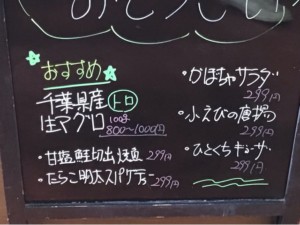 おそうざい
おすすめ
千葉県産 トロ
生マグロ 100g
800～1000円
・甘塩鮭切出焼 299円
・たらこ明太スパゲティー 299円
・かぼちゃサラダ
299円
・小えびの唐揚
299円
・ひとくちギョーザ
299円